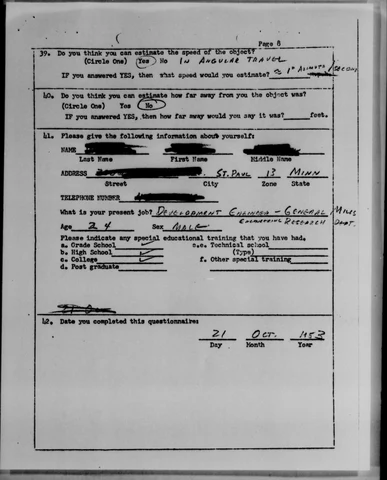 Page 8
39. Do you think you can estimate the speed of the object?
(Circle One) Yes No IN ANGULAR TRAVEL
IF you answered YES, then what speed would you estimate? 1° AZIMUTH/SECOND
40. Do you think you can estimate how far away from you the object was?
(Circle One) Yes No
IF you answered YES, then how far away would you say it was? feet.
41. Please give the following information about yourself:
NAME
Last Name First Name Middle Name
ADDRESS ST. PAUL 13 MINN
Street City Zone State
TELEPHONE NUMBER
What is your present job? DEVELOPMENT ENGINEER - GENERAL MILLS
ENGINEERING RESEARCH DEPT.
Age 24 Sex MALE
Please indicate any special educational training that you have had.
a. Grade School ✓ e.e. Technical school
b. High School ✓ (Type)
c. College ✓ f. Other special training
d. Post graduate
42. Date you completed this questionnaire:
21 OCT. 1953
Day Month Year